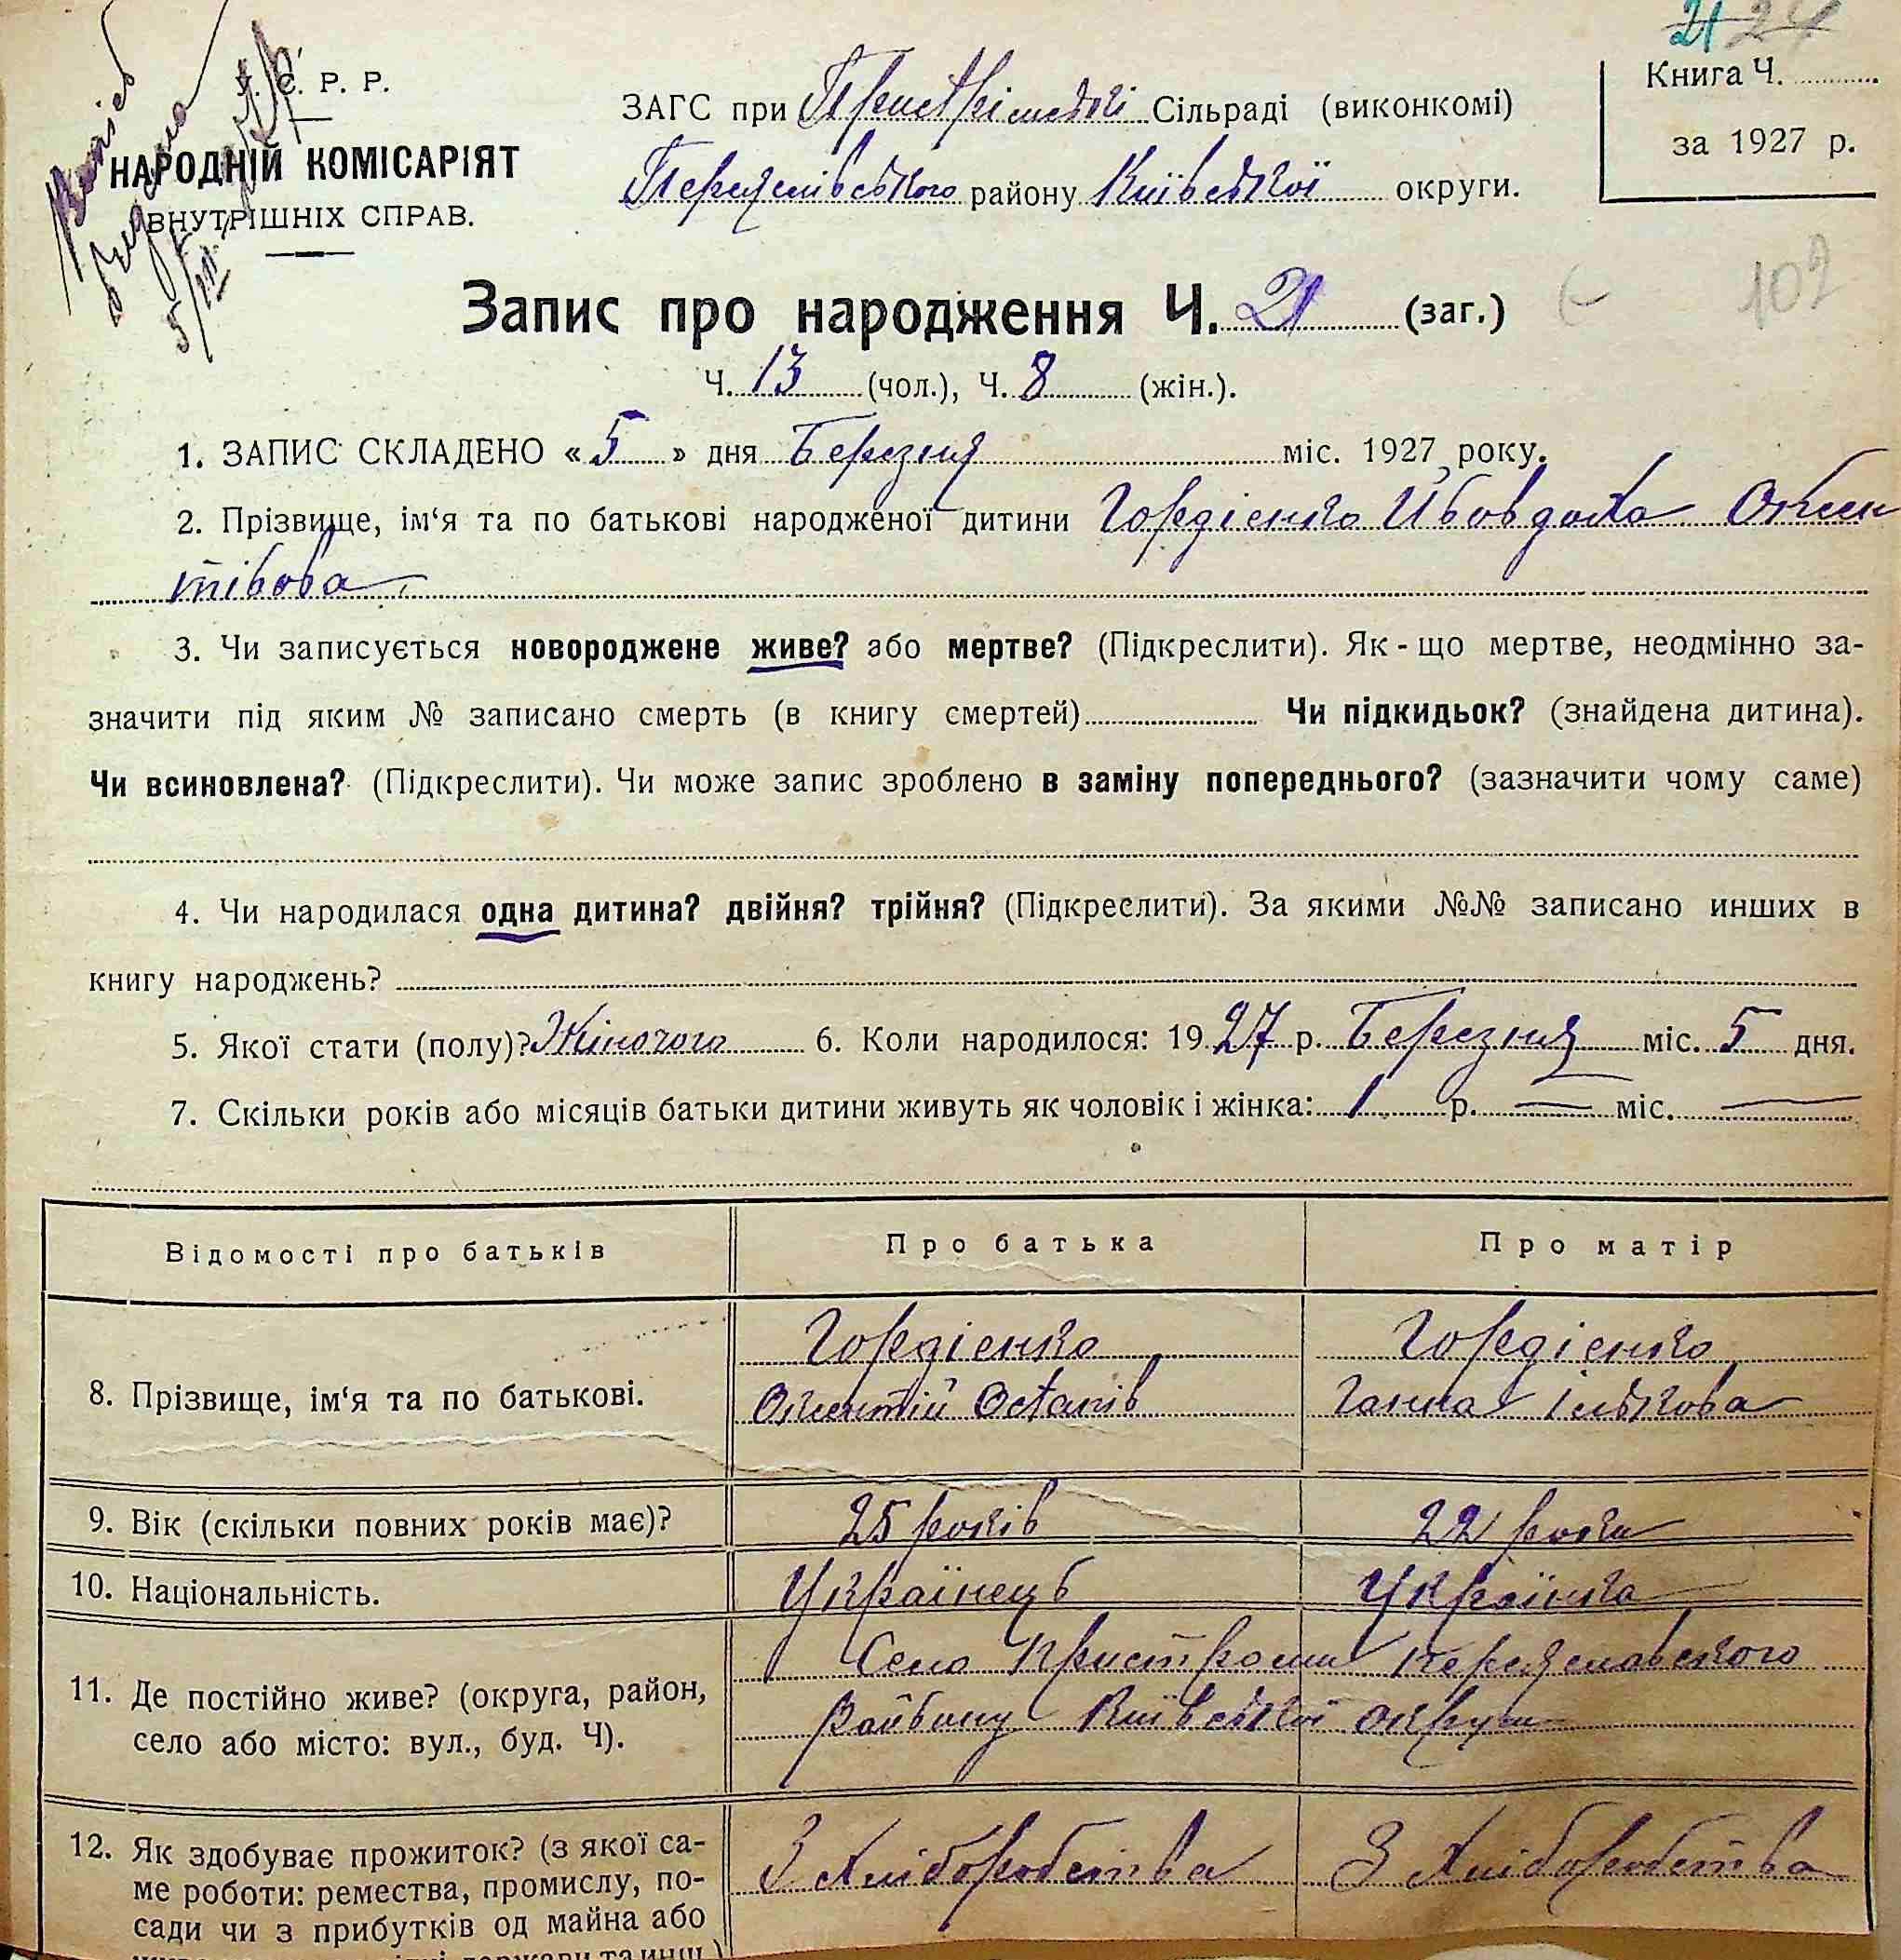 21 24
У. С. Р. Р.
НАРОДНІЙ КОМІСАРІЯТ
ВНУТРІШНІХ СПРАВ.
Витяг
видано
5/III
ЗАГС при Пристрімській Сільраді (виконкомі)
Переяславського району Київської округи.
Книга Ч.
за 1927 р.
102
Запис про народження Ч. 21 (заг.)
Ч. 13 (чол.), Ч. 8 (жін.).
1. ЗАПИС СКЛАДЕНО « 5 » дня Березня міс. 1927 року.
2. Прізвище, ім‘я та по батькові народженої дитини Гордієнко Йвовдоха Окмен
тівова
3. Чи записується новороджене живе? або мертве? (Підкреслити). Як - що мертве, неодмінно за-
значити під яким № записано смерть (в книгу смертей) Чи підкидьок? (знайдена дитина).
Чи всиновлена? (Підкреслити). Чи може запис зроблено в заміну попереднього? (зазначити чому саме)
4. Чи народилася одна дитина? двійня? трійня? (Підкреслити). За якими №№ записано инших в
книгу народжень?
5. Якої стати (полу)? Жіночого 6. Коли народилося: 1927 р. Березня міс. 5 дня.
7. Скільки років або місяців батьки дитини живуть як чоловік і жінка: 1 р. — міс. —
Відомості про батьків Про батька Про матір
Гордієнко Гордієнко
8. Прізвище, ім‘я та по батькові. Окментій Остапів Ганна Ількова
9. Вік (скільки повних років має)? 25 років 22 роки
10. Національність. Українець Українка
Село Пристроми Переяславського
11. Де постійно живе? (округа, район,
району Київської округи
село або місто: вул., буд. Ч).
12. Як здобуває прожиток? (з якої са- З Хліборобства З Хліборобства
ме роботи: ремества, промислу, по-
сади чи з прибутків од майна або
держави та инш.)